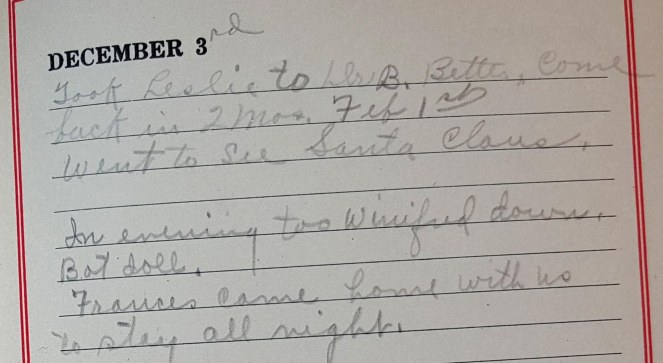 DECEMBER 3rd
Took Leslie to Dr. B. Betts, Come
back in 2 mos. Feb 1st
Went to see Santa Claus.
In evening too Winifred down.
Bot doll.
Frances came home with us
to stay all night.